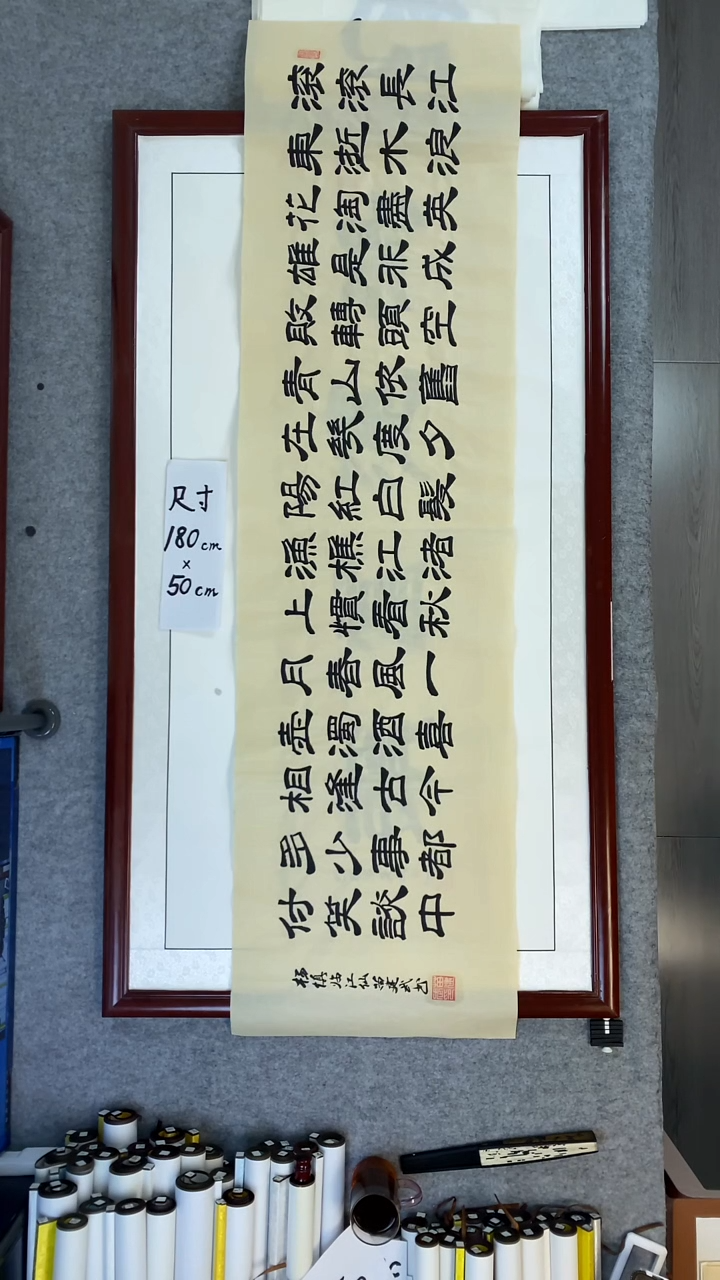 滾滾長江
東逝水浪
花淘盡英
雄是非成
敗轉頭空
青山依舊
在幾度夕
陽紅白髮
漁樵江渚
上慣看秋
月春風一
壺濁酒喜
相逢古今
多少事都
付笑談中
杨慎临江仙 建武书
尺寸
180cm
×
50cm